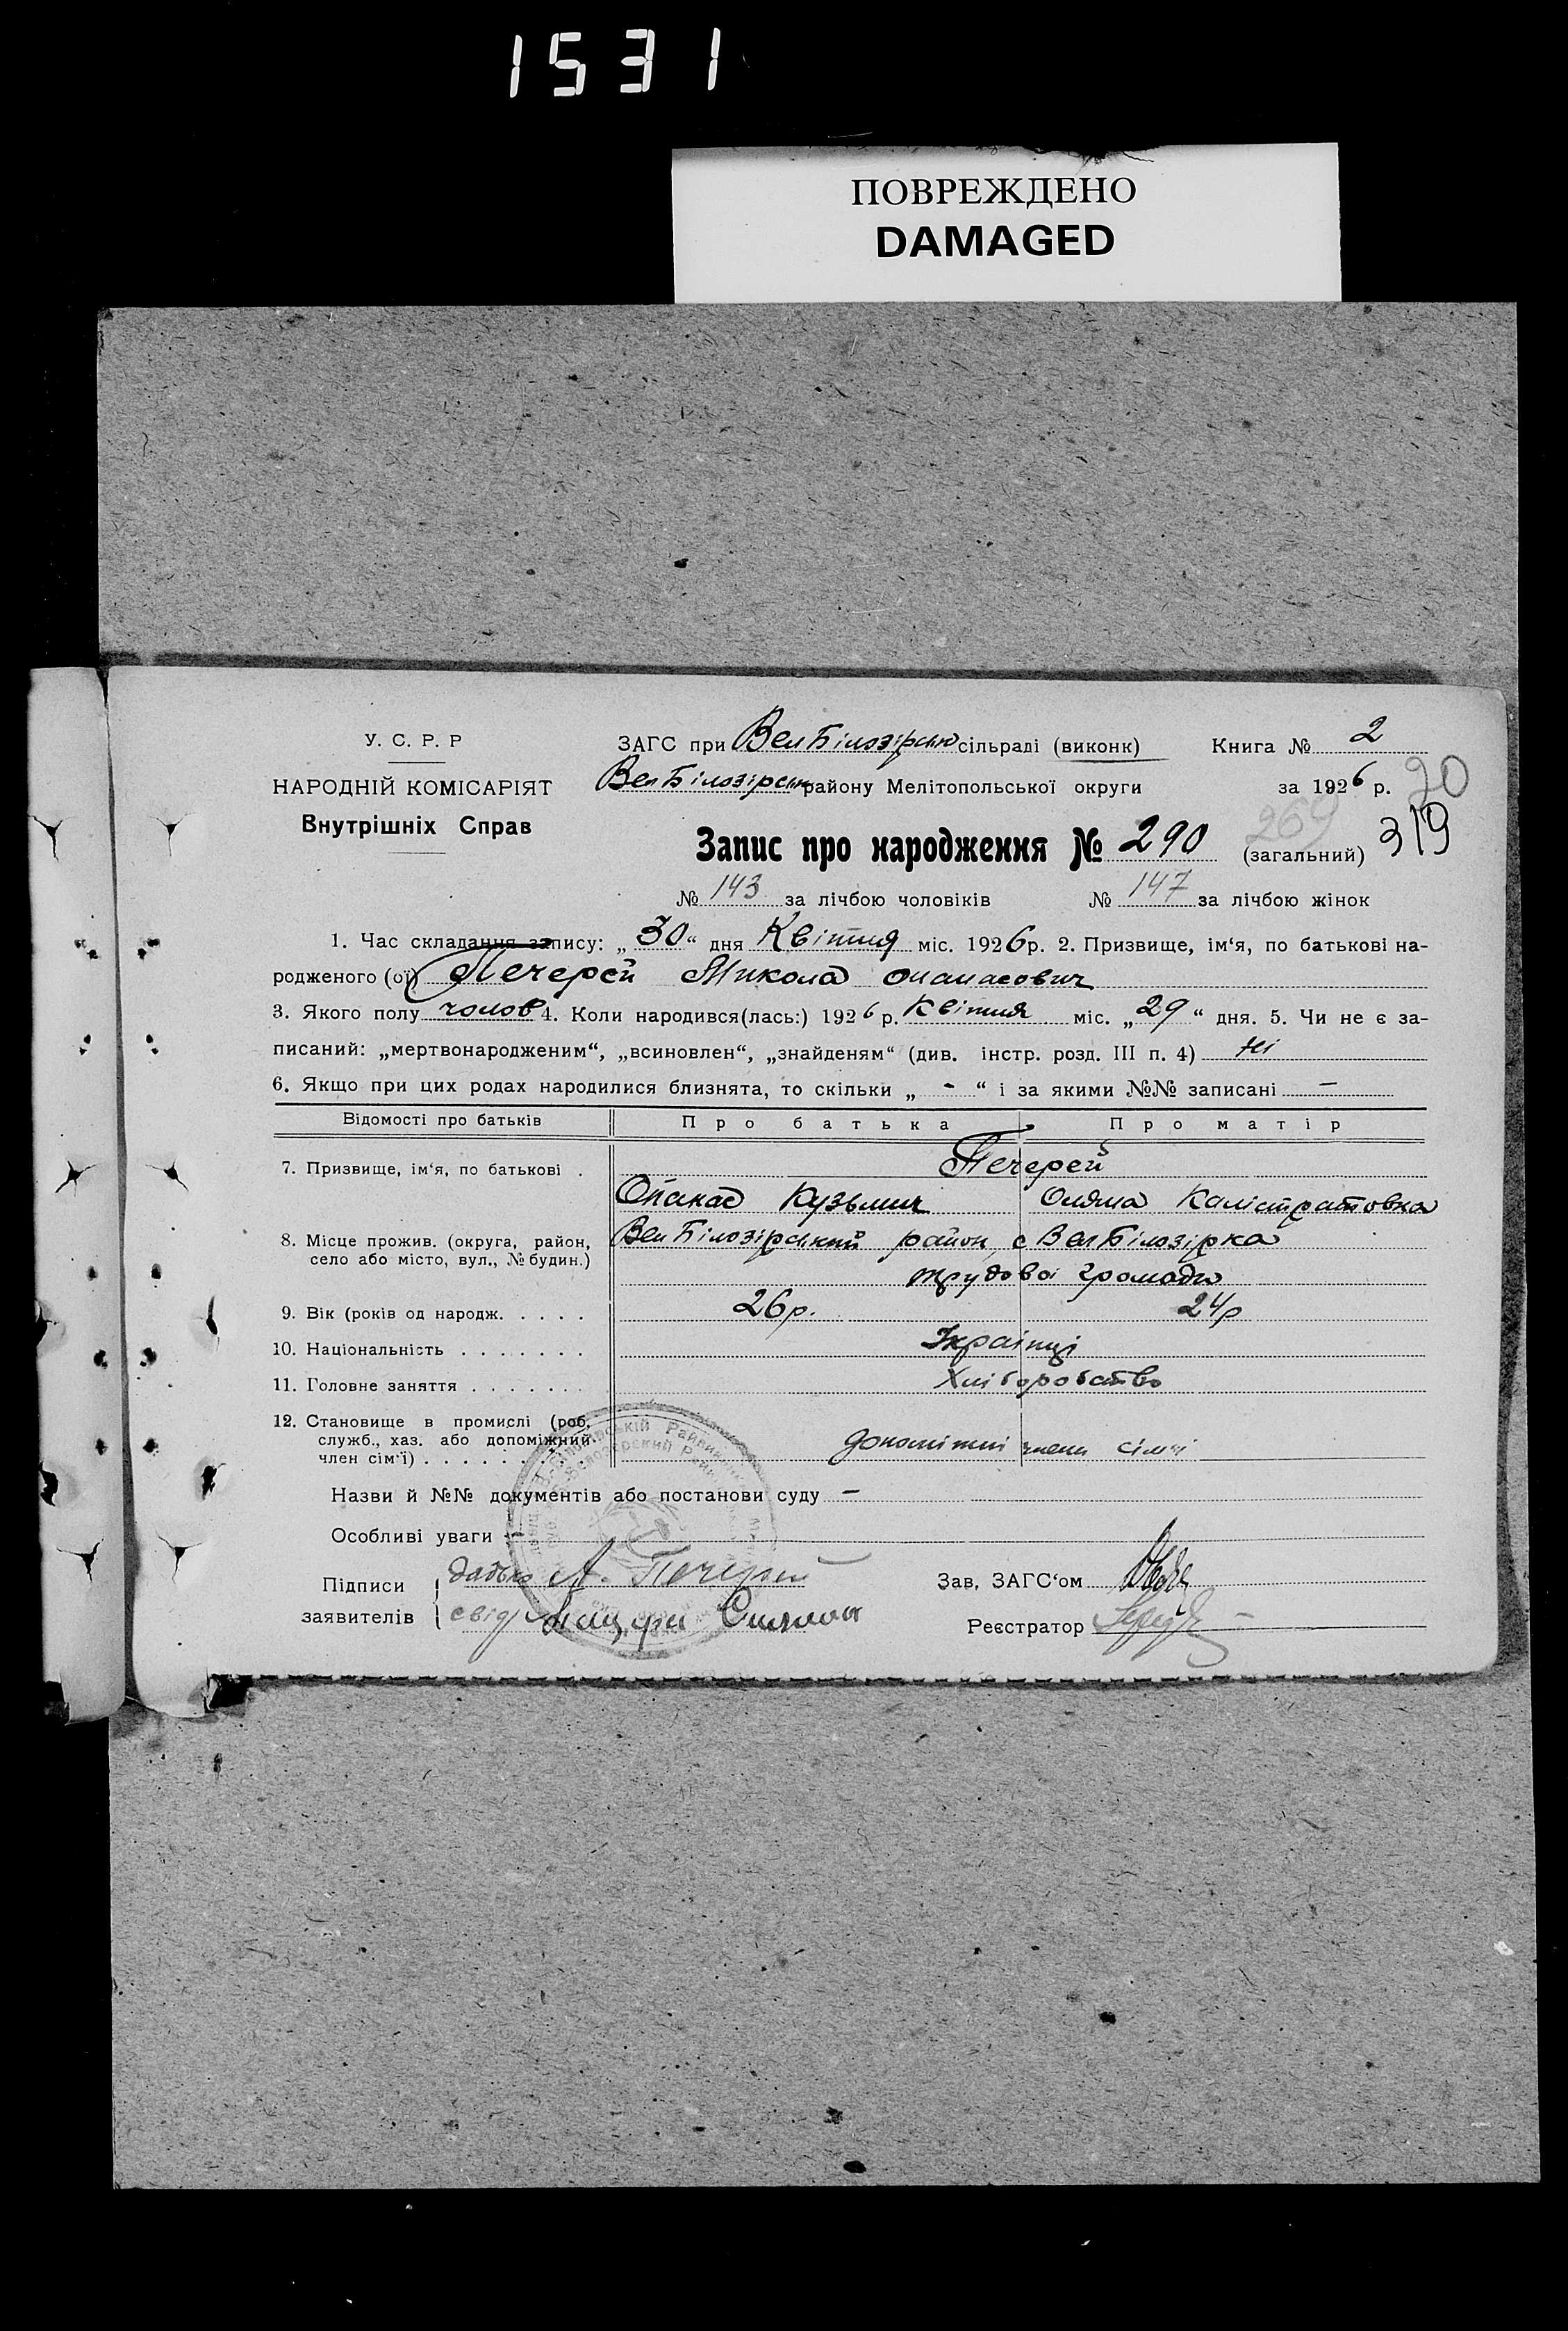 1531
ПОВРЕЖДЕНО
DAMAGED
У. С. Р. Р
НАРОДНІЙ КОМІСАРІЯТ
Внутрішніх Справ
ЗАГС при Вел Білозірськ сільраді (виконк)
Книга № 2
Вел Білозірськ району Мелітопольської округи
за 1926 р.
20
269
Запис про народження № 290 (загальний) 319
№ 143 за лічбою чоловіків № 147 за лічбою жінок
1. Час складання запису: „30“ дня Квітня міс. 1926р. 2. Призвище, ім‘я, по батькові на-
родженого (ої) Печерей Микола опанасович
3. Якого полу чолов 4. Коли народився(лась:) 1926 р. Квітня міс. „29“ дня. 5. Чи не є за-
писаний: „мертвонародженим“, „всиновлен“, „знайденям“ (див. інстр. розд. III п. 4) Ні
6. Якщо при цих родах народилися близнята, то скільки „ - “ і за якими №№ записані —
Відомості про батьків Про батька Про матір
7. Призвище, ім‘я, по батькові . Печерей
Опанас Кузьмич Оляна Калістратовна
8. Місце прожив. (округа, район,
село або місто, вул., № будин.)
Вел Білозірський район, с Вел Білозірка
трудової громади
9. Вік (років од народж. . . . . 26р. 24р
10. Національність . . . . . . . Українці
11. Головне заняття . . . . . . . Хліборобство
12. Становище в промислі (роб,
служб., хаз. або допоміжний
член сім‘ї) . . . . . . допоміжні члени сімї
Назви й №№ документів або постанови суду —
Особливі уваги —
Підписи
заявителів
батько А. Печерей
свід
Зав, ЗАГС‘ом
Реєстратор